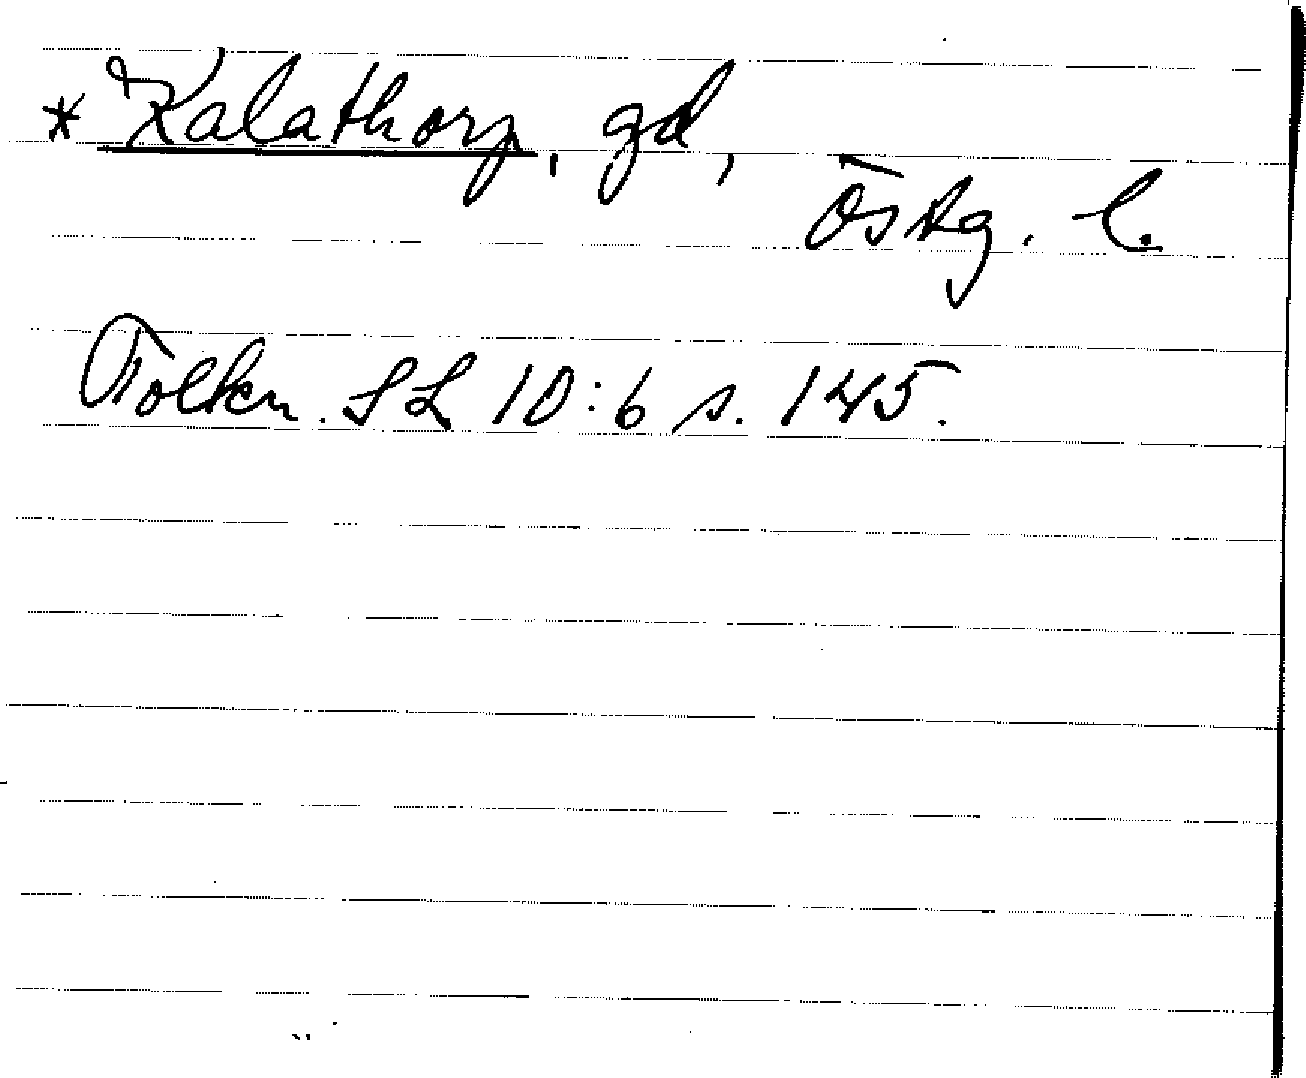 * Kalathorp, gd,
Östg. l.
Tolkn. SL 10:6 s. 145.